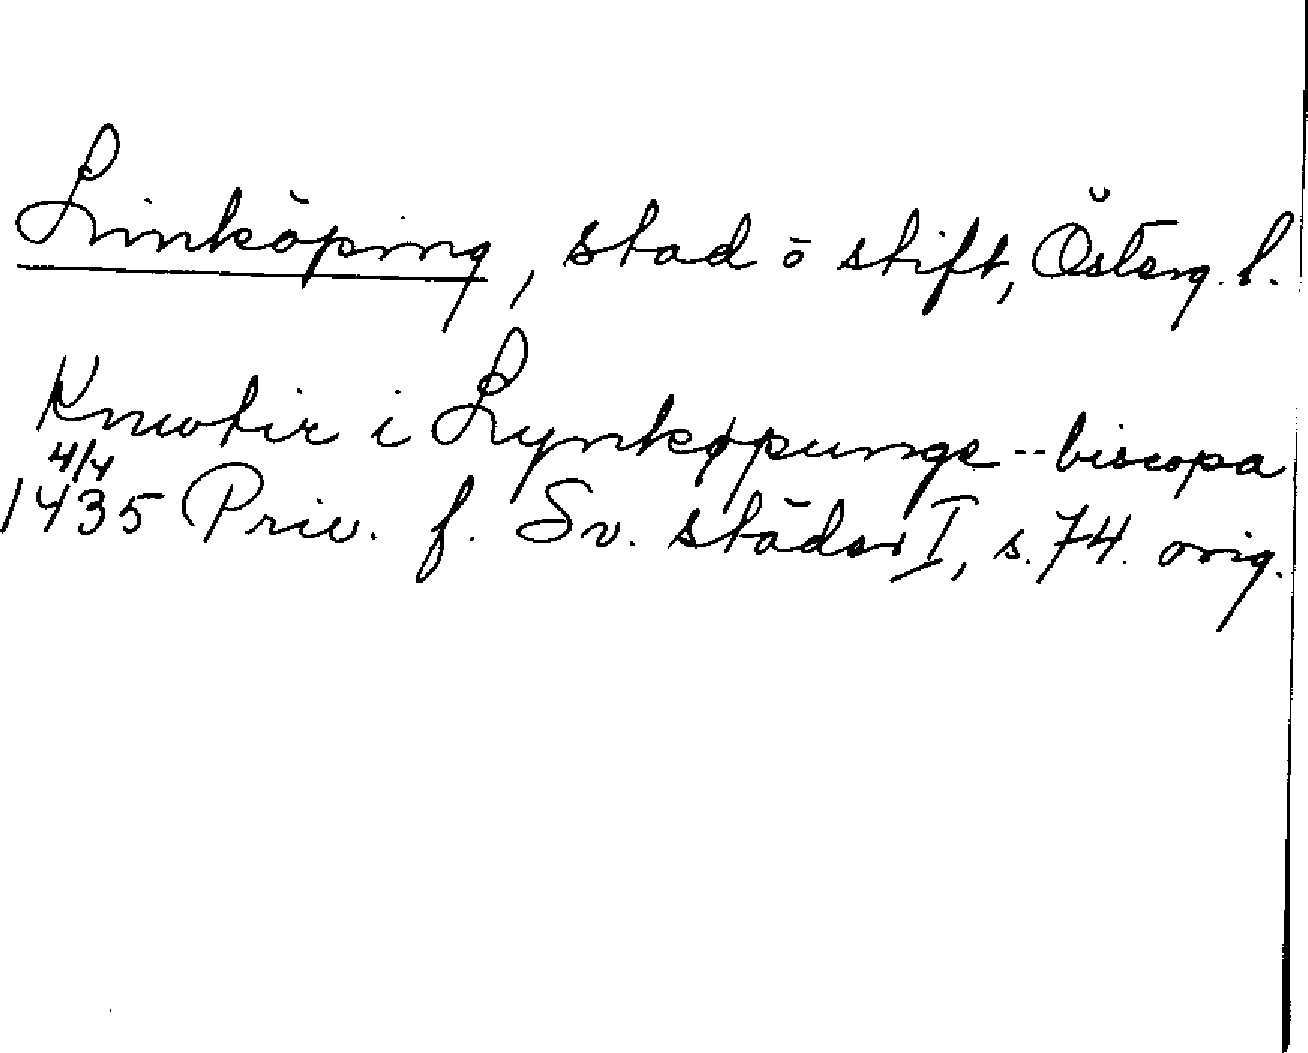 Linköping, stad ō stift, Österg. l.
Knwtir i Lynkøpungx -- biscopa
4/4
1435 Priv. f. Sv. städer I, s. 74. orig.